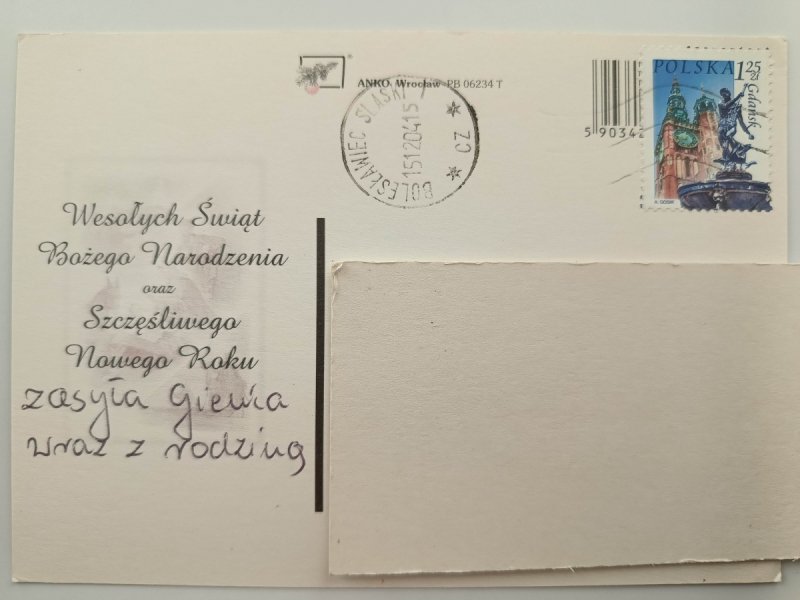 ANKO Wrocław PB 06234 T
BOLESŁAWIEC ŚLĄSKI 1
15120415
CZ
5 90342
POLSKA 1 25 zł
Gdańsk
Wesołych Świąt
Bożego Narodzenia
oraz
Szczęśliwego
Nowego Roku
zasyła Gienia
wraz z rodziną